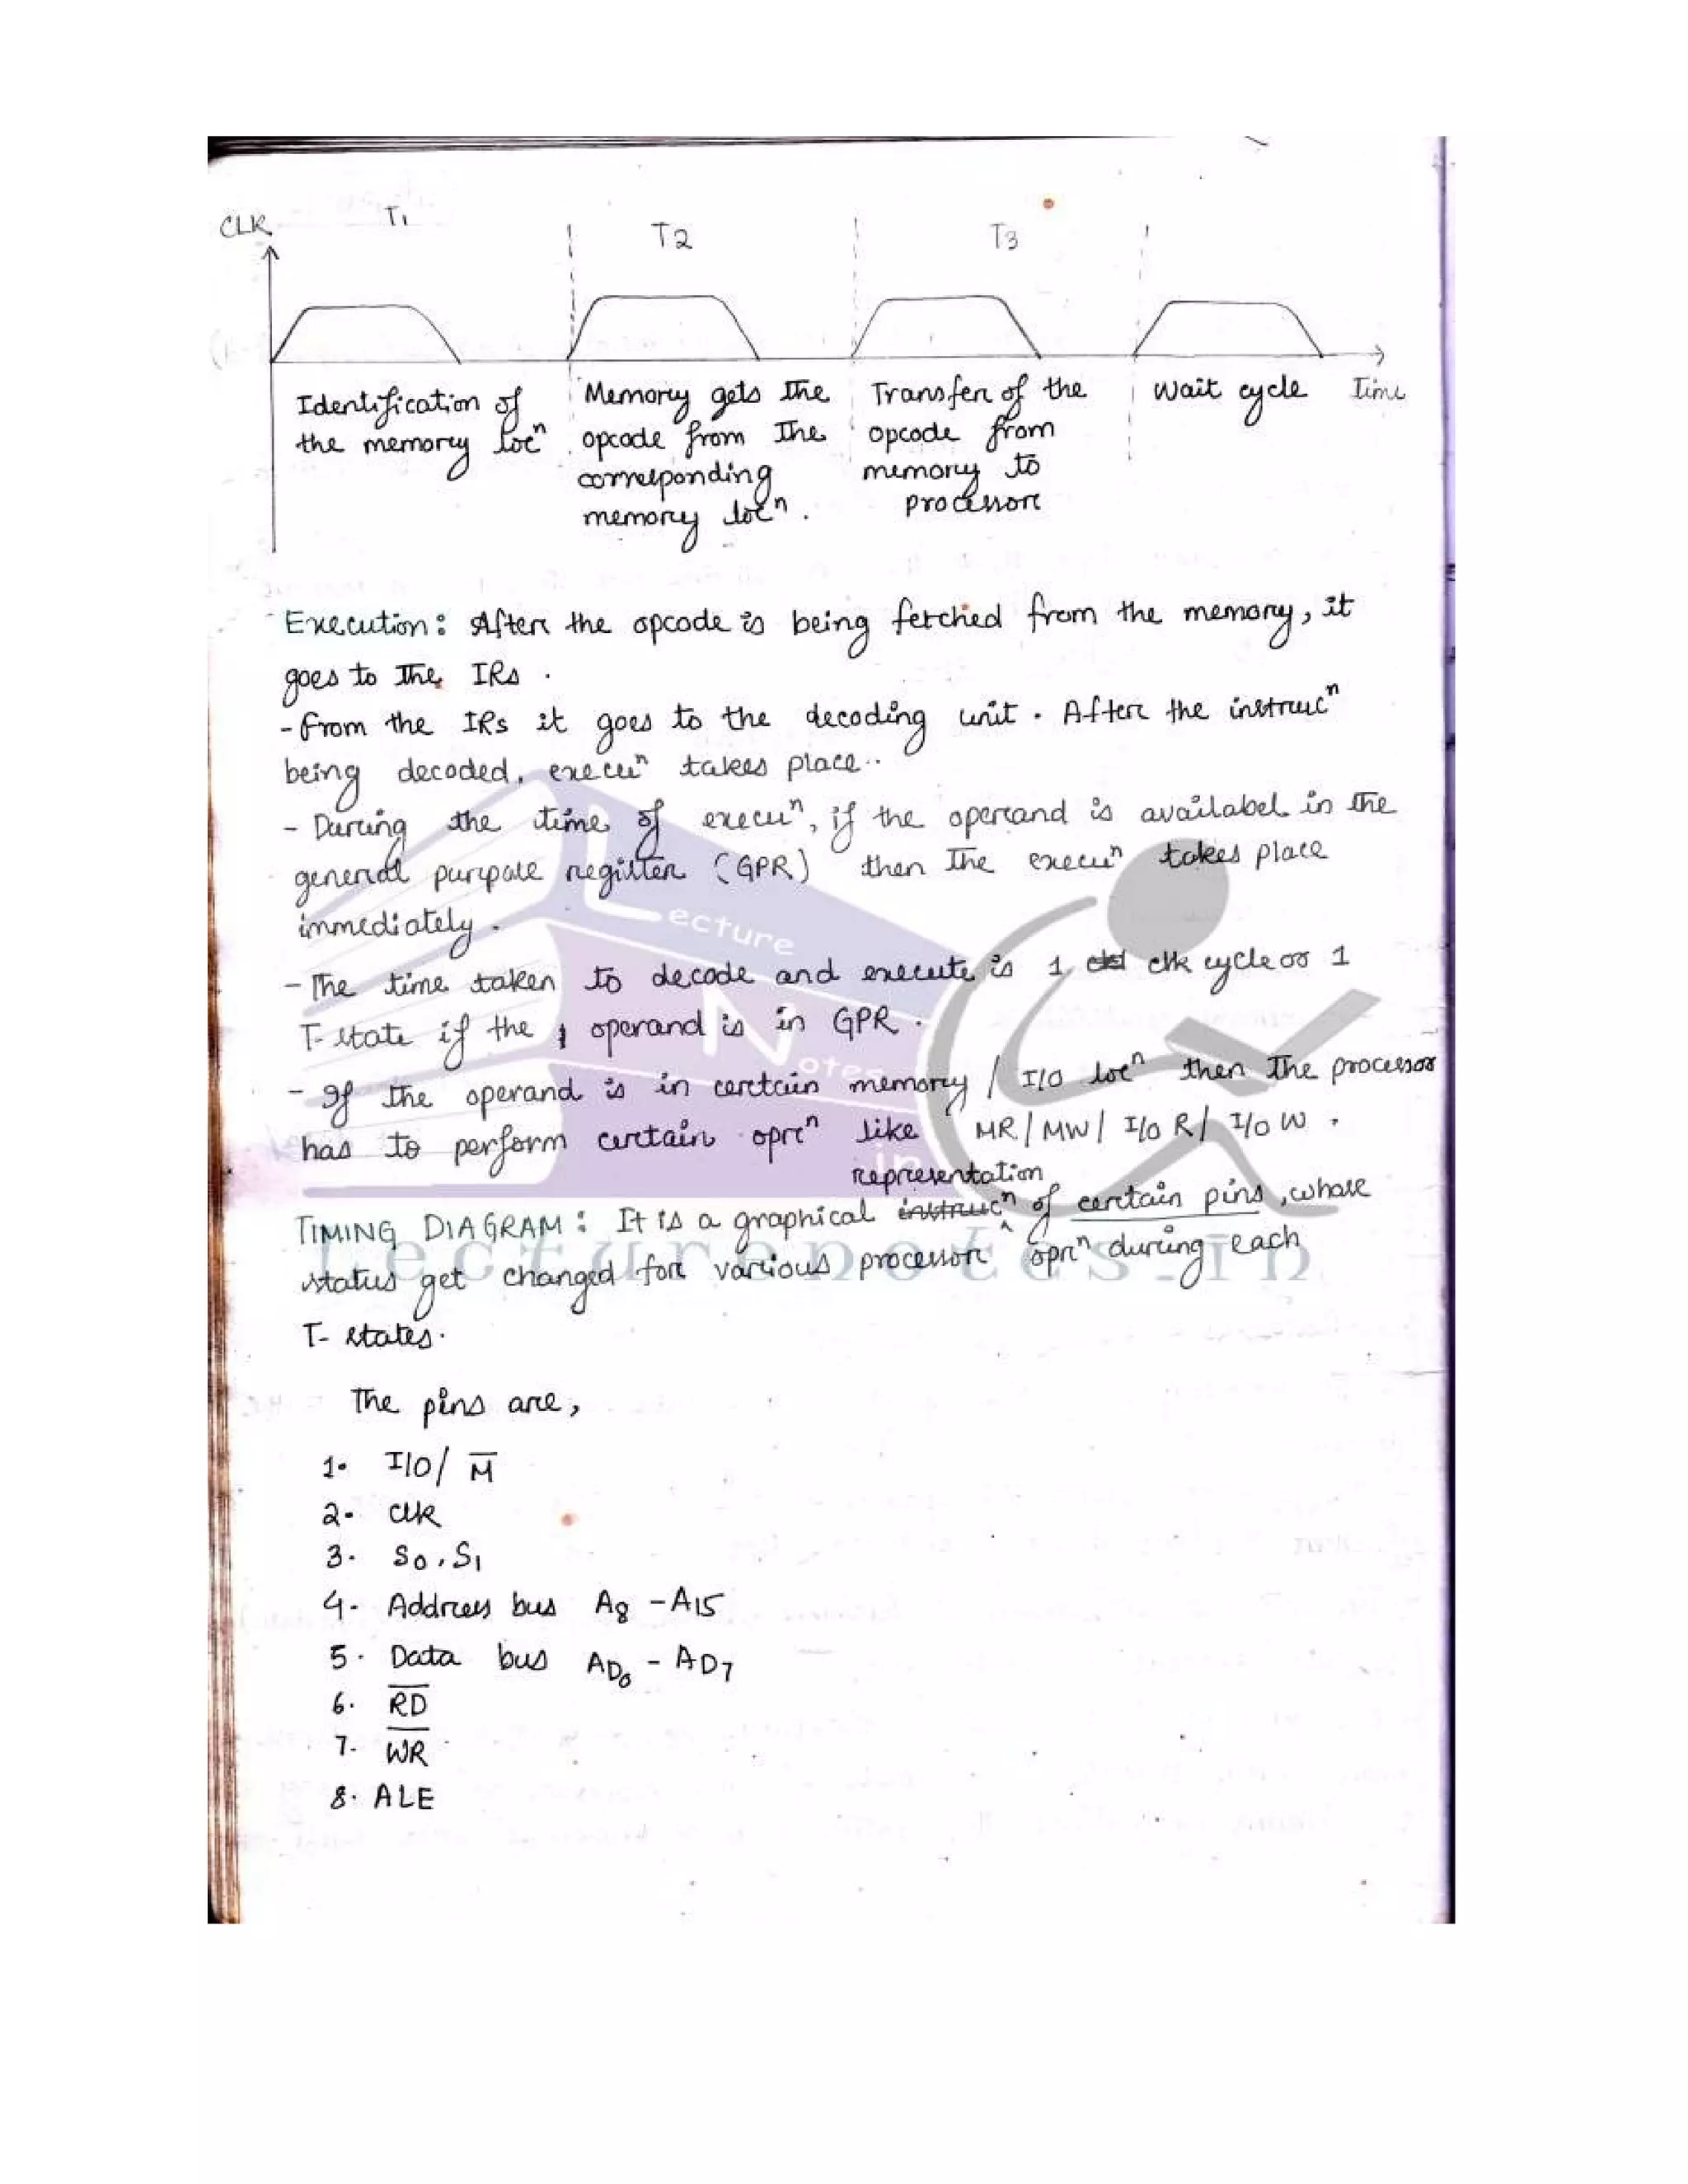 CLK T1 T2 T3
Identification of the memory locn
Memory gets the opcode from the corresponding memory locn.
Transfer of the opcode from memory to processor
Wait cycle
Time
Execution: After the opcode is being fetched from the memory, it
goes to the IRs.
- From the IRs it goes to the decoding unit. After the instrucn
being decoded, execun takes place..
- During the time of execun, if the operand is availabel in the
general purpose register (GPR) then the execun takes place
immediately.
- The time taken to decode and execute is 1 clk cycle or 1
T-state if the operand is in GPR.
- If the operand is in certain memory / I/O locn then the processor
has to perform certain oprn like MR/MW/ I/o R/ I/o W.
representation
TIMING DIAGRAM: It is a graphical instrucn of certain pins, whose
status get changed for various processor oprn during each
T- states.
The pins are,
1. I/O/ M̅
2. clk
3. S0, S1
4. Address bus A8 - A15
5. Data bus AD0 - AD7
6. R̅D̅
7. W̅R̅
8. ALE
Lecture
Notes
in
Lecturenotes.in